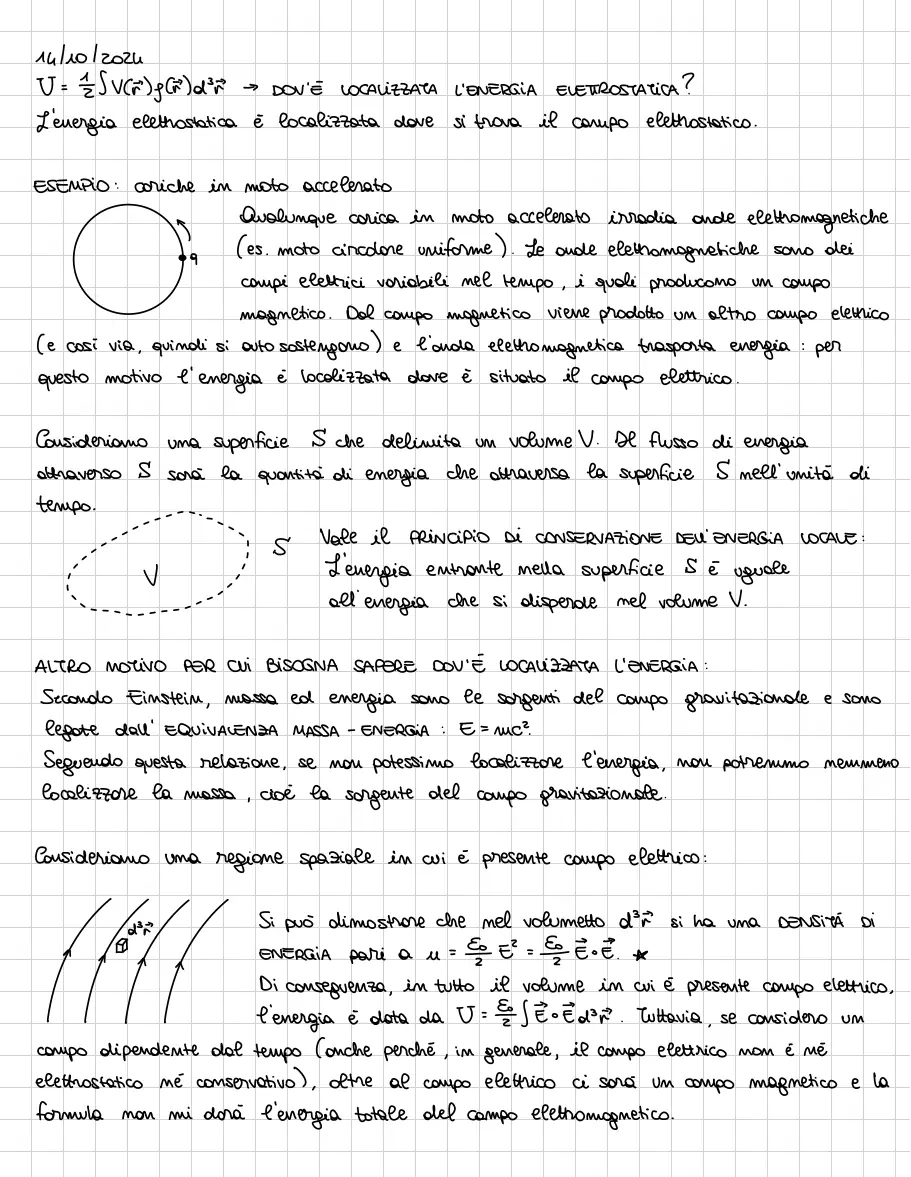 14/10/2024
U = 1/2 ∫ V(r⃗) ρ(r⃗) d³r⃗ → DOV'È LOCALIZZATA L'ENERGIA ELETTROSTATICA?
L'energia elettrostatica è localizzata dove si trova il campo elettrostatico.
ESEMPIO: cariche in moto accelerato
q
Qualunque carica in moto accelerato irradia onde elettromagnetiche
(es. moto circolare uniforme). Le onde elettromagnetiche sono dei
campi elettrici variabili nel tempo, i quali producono un campo
magnetico. Dal campo magnetico viene prodotto un altro campo elettrico
(e così via, quindi si auto sostengono) e l'onda elettromagnetica trasporta energia: per
questo motivo l'energia è localizzata dove è situato il campo elettrico.
Consideriamo una superficie S che delimita un volume V. Il flusso di energia
attraverso S sarà la quantità di energia che attraversa la superficie S nell'unità di
tempo.
V
S
Vale il PRINCIPIO DI CONSERVAZIONE DELL'ENERGIA LOCALE:
L'energia entrante nella superficie S è uguale
all'energia che si disperde nel volume V.
ALTRO MOTIVO PER CUI BISOGNA SAPERE DOV'È LOCALIZZATA L'ENERGIA:
Secondo Einstein, massa ed energia sono le sorgenti del campo gravitazionale e sono
legate dall'EQUIVALENZA MASSA-ENERGIA: E = mc².
Seguendo questa relazione, se non potessimo localizzare l'energia, non potremmo nemmeno
localizzare la massa, cioè la sorgente del campo gravitazionale.
Consideriamo una regione spaziale in cui è presente campo elettrico:
d³r⃗
Si può dimostrare che nel volumetto d³r⃗ si ha una DENSITÀ DI
ENERGIA pari a u = ε₀/2 E² = ε₀/2 E⃗•E⃗. ★
Di conseguenza, in tutto il volume in cui è presente campo elettrico,
l'energia è data da U = ε₀/2 ∫ E⃗•E⃗ d³r⃗. Tuttavia, se considero un
campo dipendente dal tempo (anche perché, in generale, il campo elettrico non è né
elettrostatico né conservativo), oltre al campo elettrico ci sarà un campo magnetico e la
formula non mi darà l'energia totale del campo elettromagnetico.